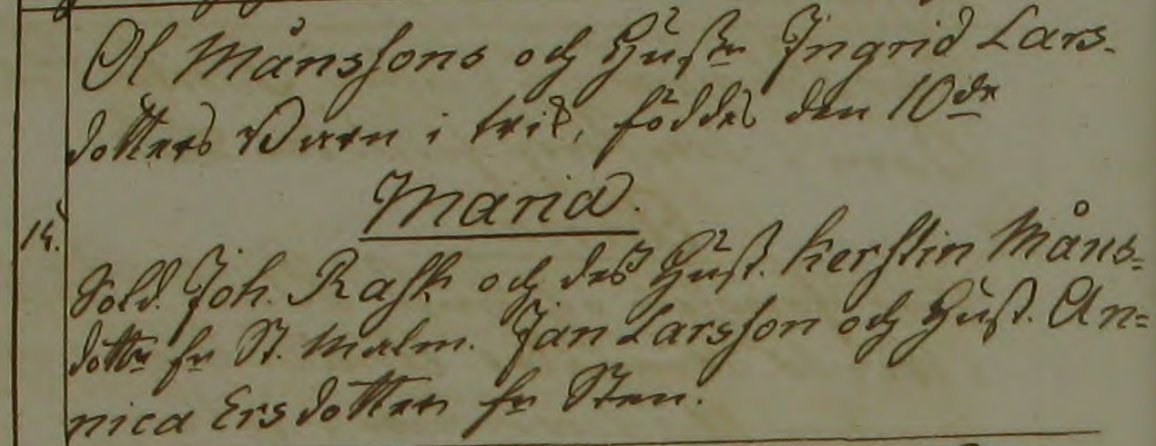 Ol Månssons och Hust Ingrid Lars-
dotters Barn i  föddes den 10de
Maria.
14.
Sold. Joh. Rask och des Hust. Kerstin Måns=
dotter fr St. Malm. Jan Larsson och Hust. An=
nica Ersdotter fr Sten.